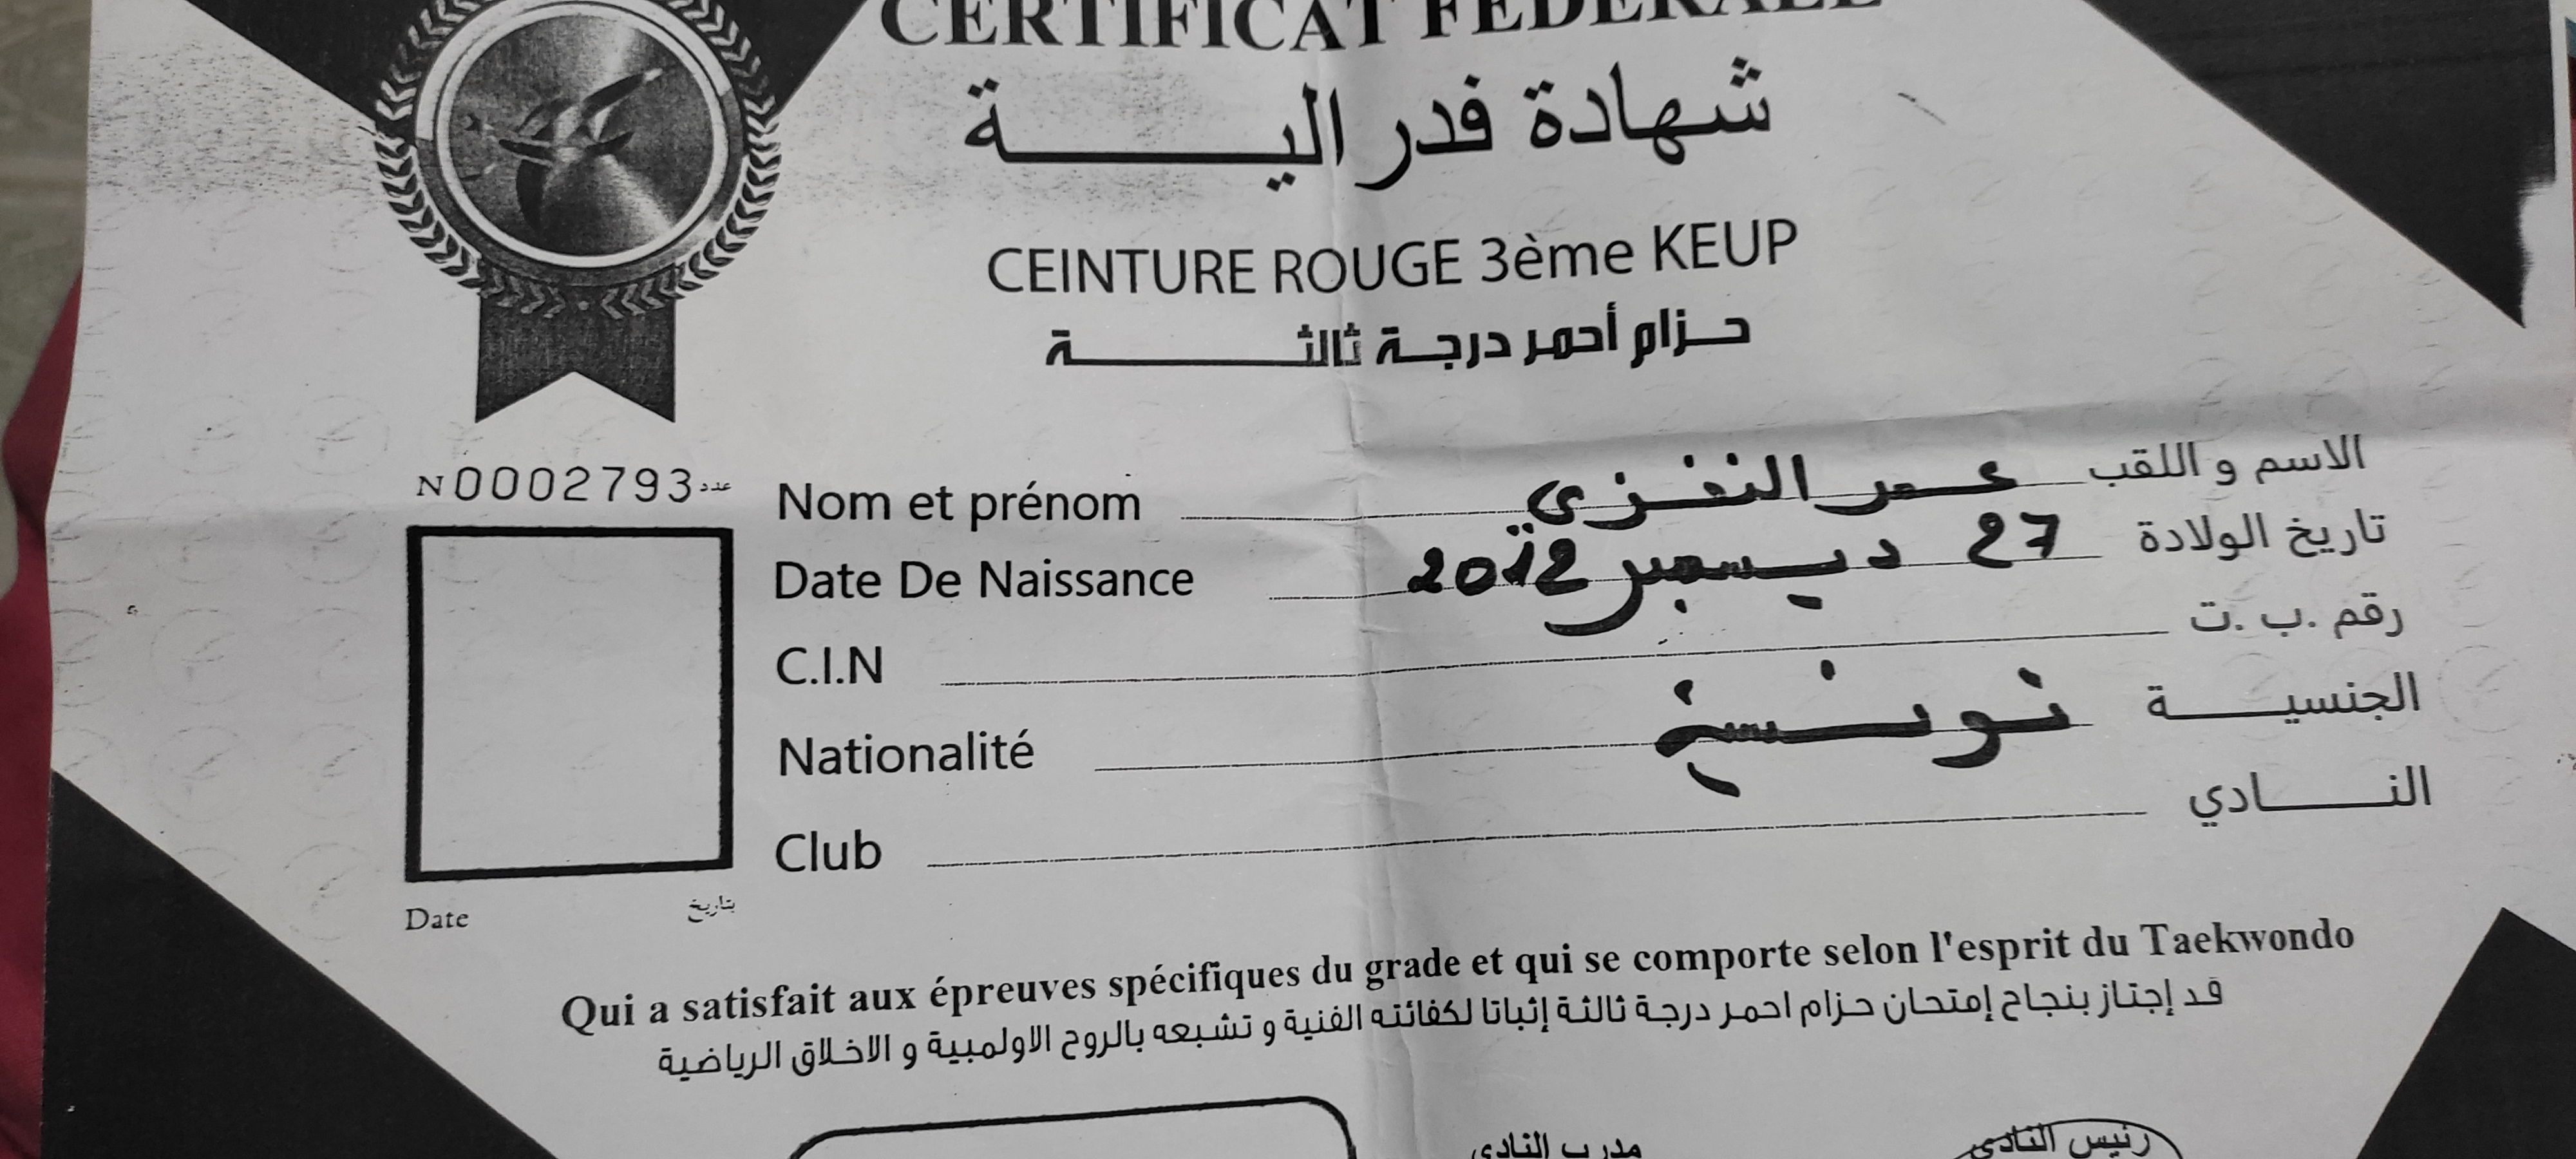 CERTIFICAT FEDERALE
شهادة فدرالية
CEINTURE ROUGE 3ème KEUP
حزام أحمر درجة ثالثة
N0002793عدد
Nom et prénom عمر النفزي الاسم و اللقب
Date De Naissance 27 ديسمبر 2012 تاريخ الولادة
C.I.N رقم .ب .ت
Nationalité تونسية الجنسية
Club النادي
Date بتاريخ
Qui a satisfait aux épreuves spécifiques du grade et qui se comporte selon l'esprit du Taekwondo
قد إجتاز بنجاح إمتحان حزام احمر درجة ثالثة إثباتا لكفائته الفنية و تشبعه بالروح الاولمبية و الاخلاق الرياضية
رئيس النادي
مدرب النادي